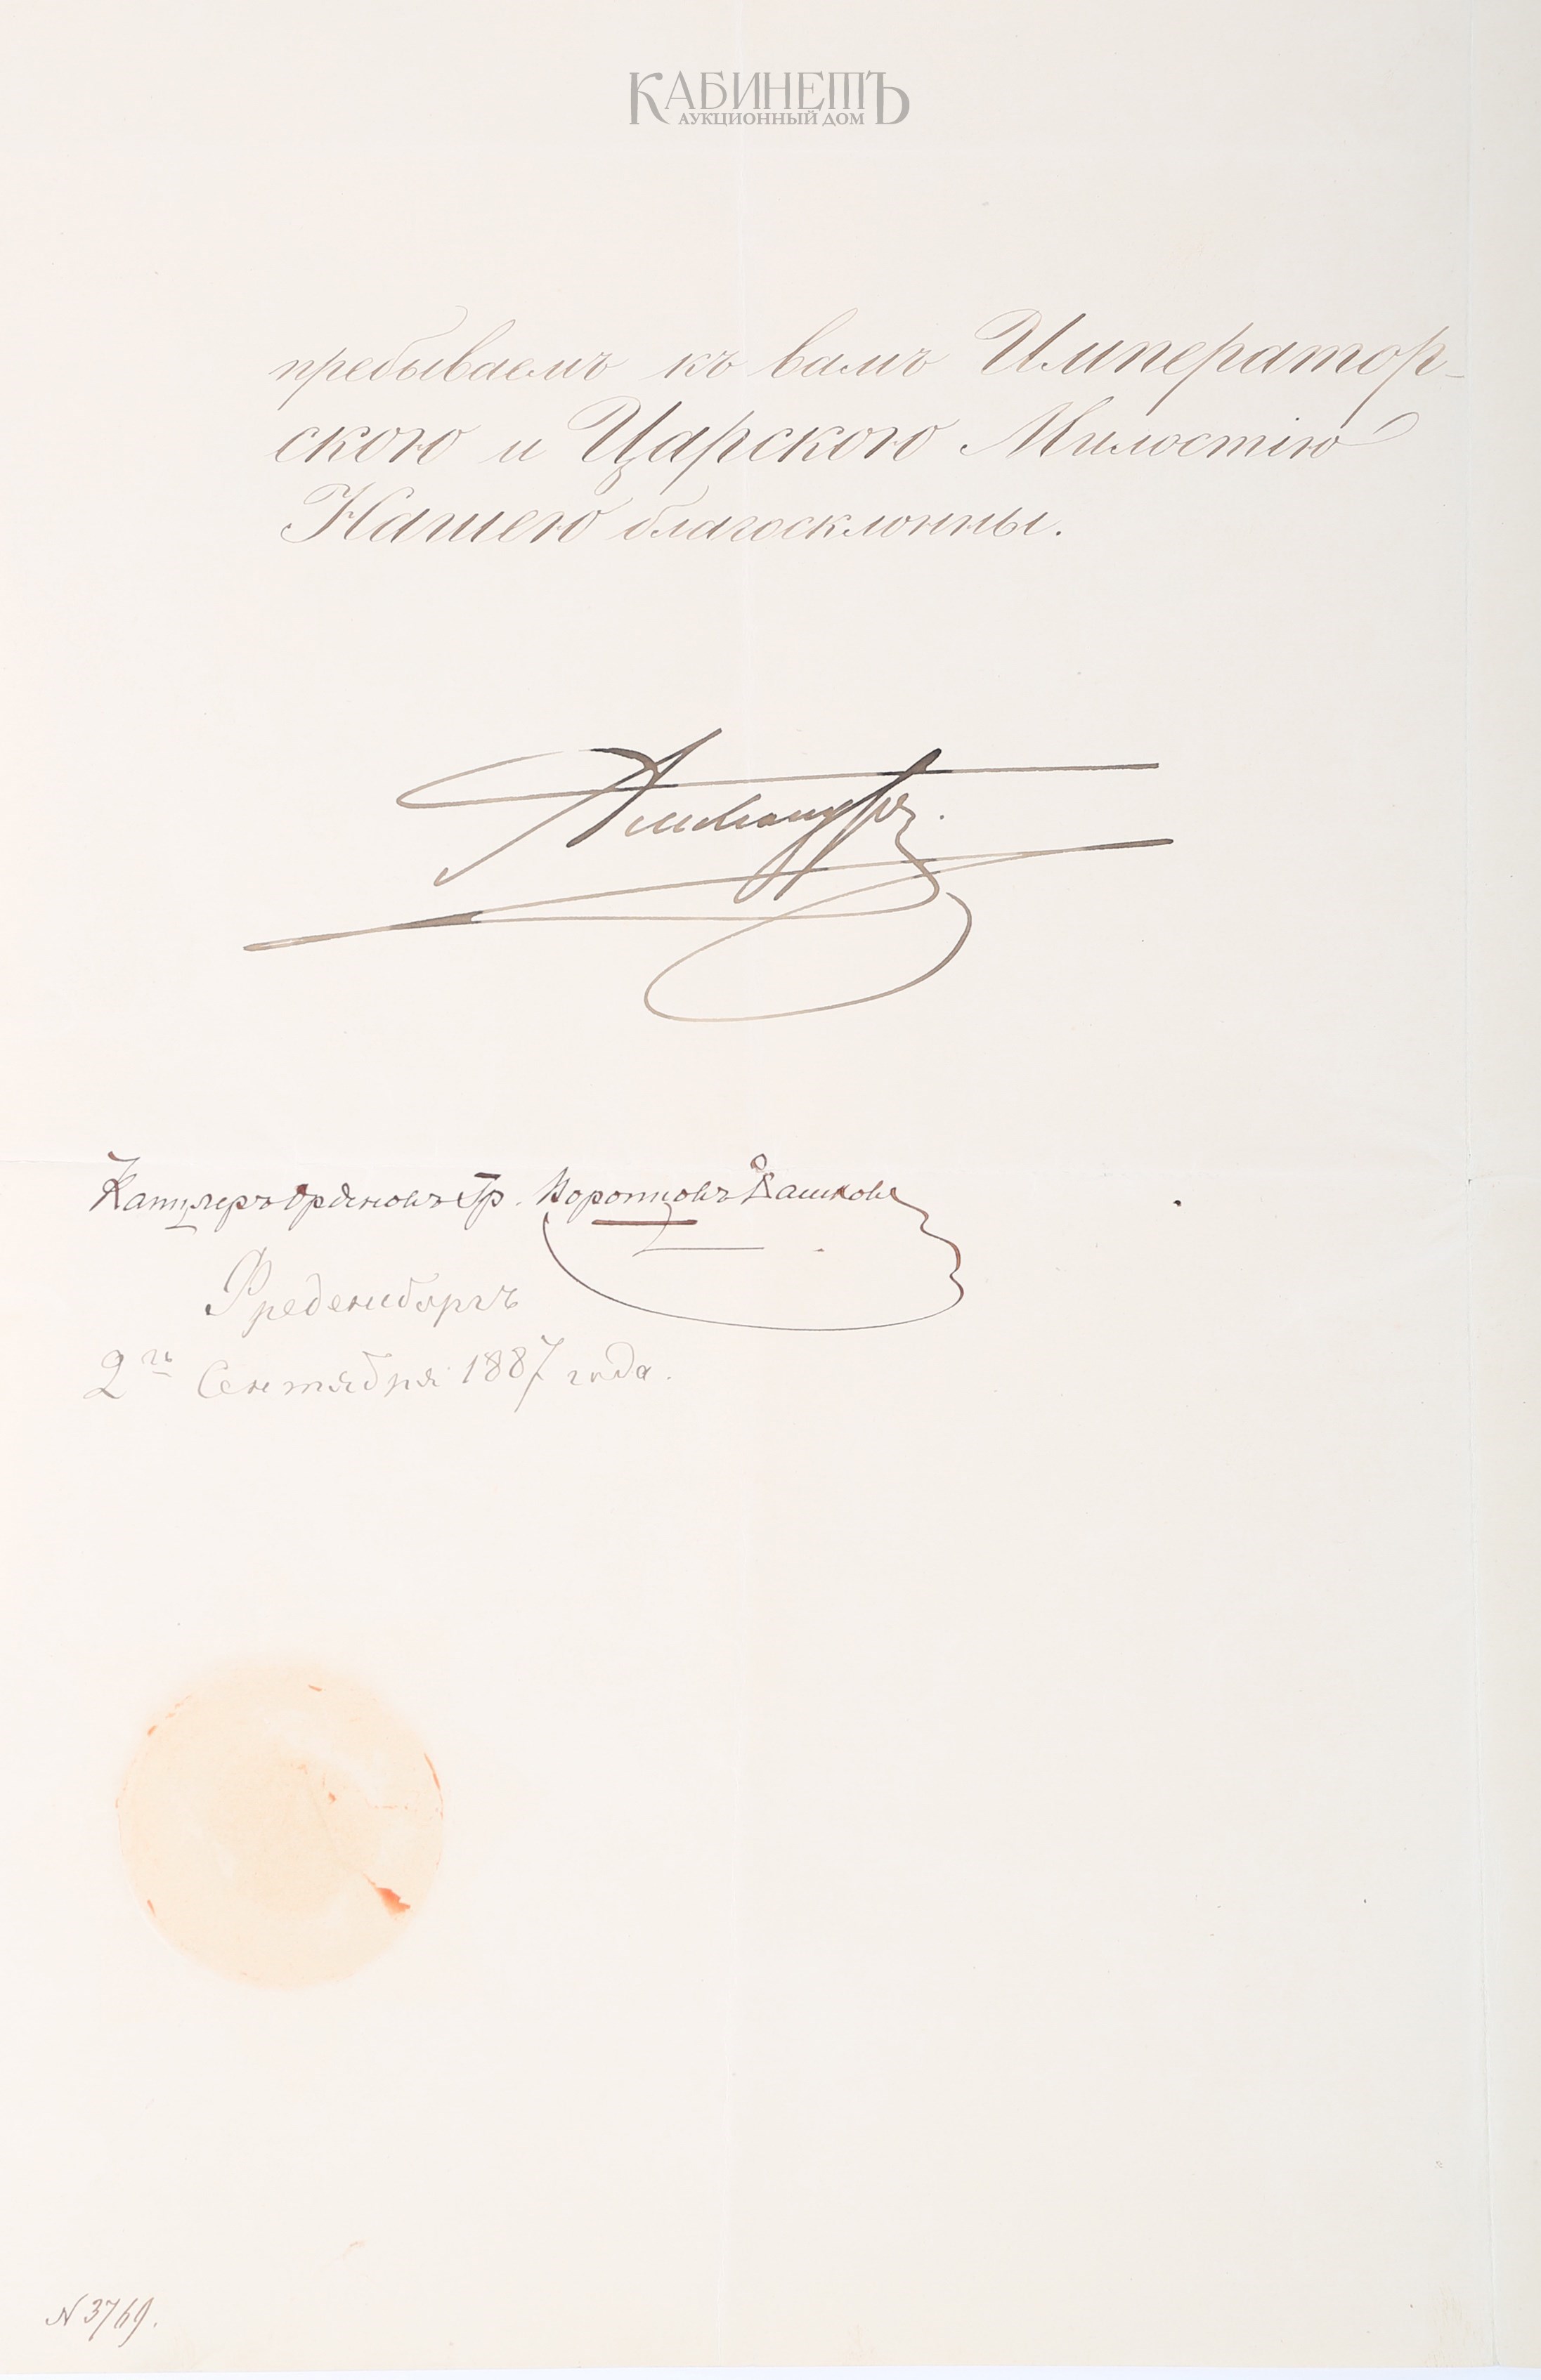 КАБИНЕТЪ
АУКЦИОННЫЙ ДОМ
пребываемъ къ вамъ Император-
скою и Царскою Милостію
Нашею благосклонны.
Александръ.
Канцлеръ Орденовъ Гр. Воронцовъ Дашковъ
Фреденсборгъ
2го Сентября 1887 года.
N 3769.